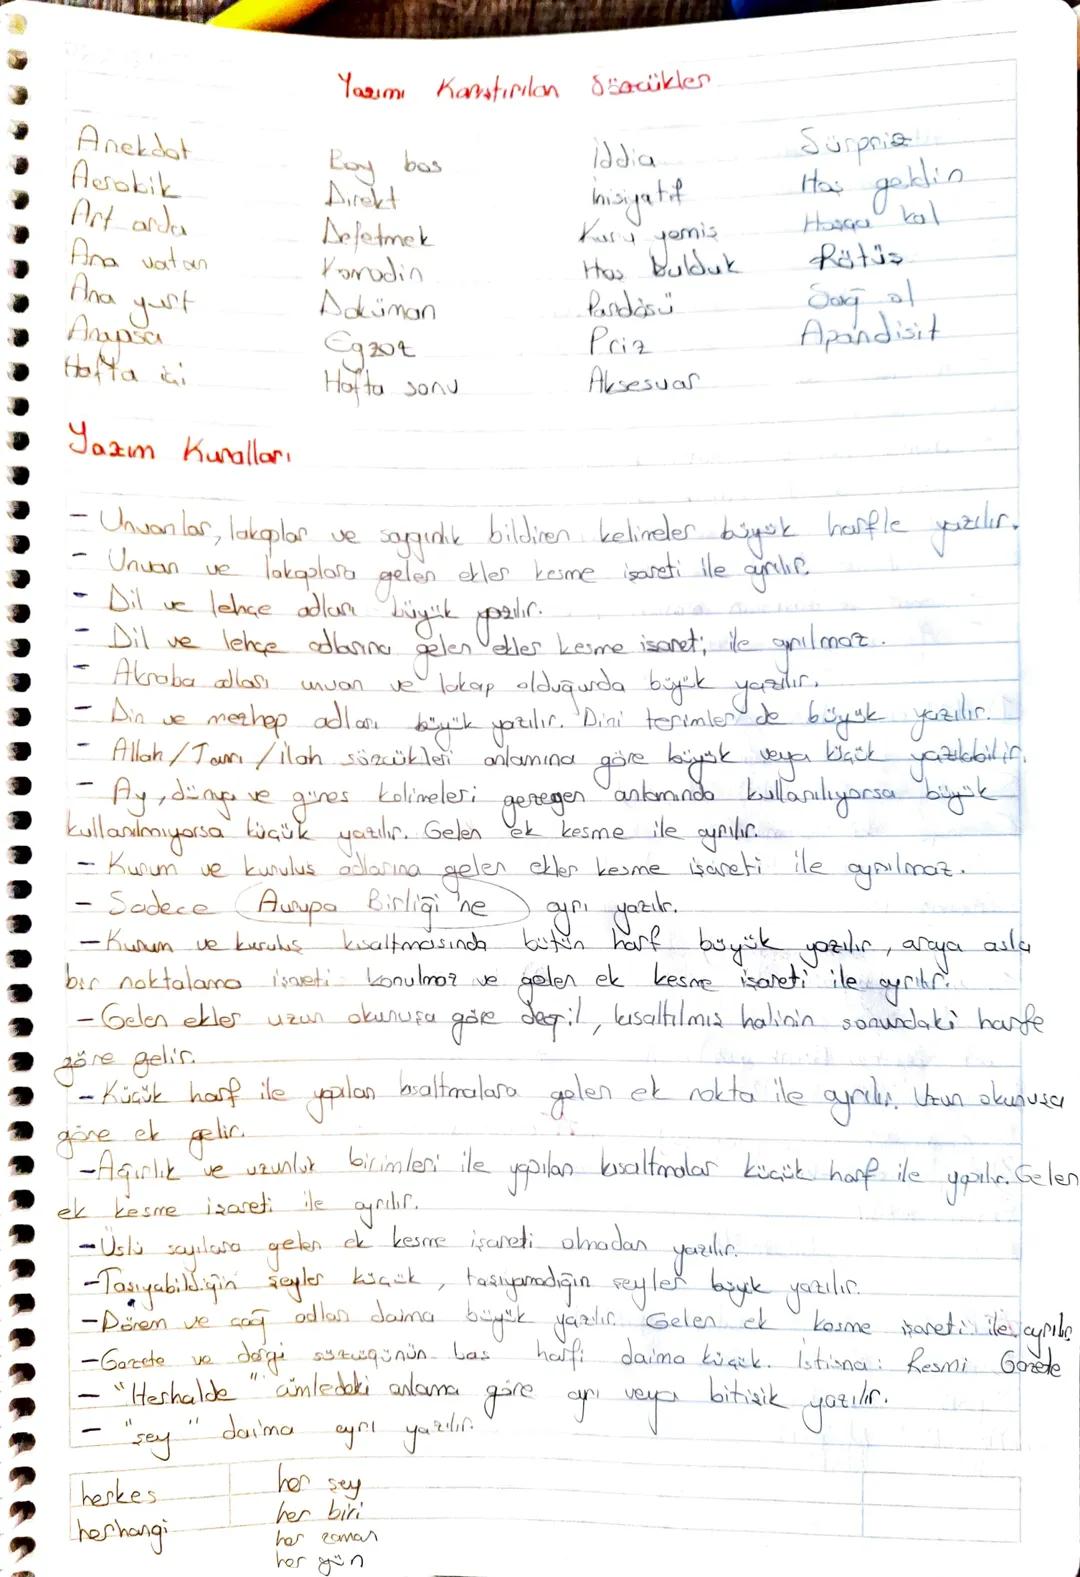 Yazımı Karıştırılan Sözcükler
Anekdot
Aerobik
Art arda
Ana vatan
Ana yurt
Arapsaçı
Hafta içi
Boy bos
Direkt
Defetmek
Komodin
Doküman
Egzoz
Hafta sonu
İddia
İnisiyatif
Kuru yemiş
Hoş bulduk
Pardösü
Priz
Aksesuar
Sürpriz
Hoş geldin
Hoşça kal
Rötüş
Sağ ol
Apandisit
Yazım Kuralları
- Unvanlar, lakaplar ve saygınlık bildiren kelimeler büyük harfle yazılır.
- Unvan ve lakaplara gelen ekler kesme işareti ile ayrılır.
- Dil ve lehçe adları büyük yazılır.
- Dil ve lehçe adlarına gelen ekler kesme işareti ile ayrılmaz.
- Akraba adları unvan ve lakap olduğunda büyük yazılır.
- Din ve mezhep adları büyük yazılır. Dini terimler de büyük yazılır.
- Allah / Tanrı / ilah sözcükleri anlamına göre büyük veya küçük yazılabilir.
- Ay, dünya ve güneş kelimeleri gezegen anlamında kullanılıyorsa büyük
kullanılmıyorsa küçük yazılır. Gelen ek kesme ile ayrılır.
- Kurum ve kuruluş adlarına gelen ekler kesme işareti ile ayrılmaz.
- Sadece Avrupa Birliği'ne ayrı yazılır.
- Kurum ve kuruluş kısaltmasında bütün harf büyük yazılır, araya asla
bir noktalama işareti konulmaz ve gelen ek kesme işareti ile ayrılır.
- Gelen ekler uzun okunuşa göre değil, kısaltılmış halinin sonundaki harfe
göre gelir.
- Küçük harf ile yapılan kısaltmalara gelen ek nokta ile ayrılır. Uzun okunuşa
göre ek gelir.
- Ağırlık ve uzunluk birimleri ile yapılan kısaltmalar küçük harf ile yapılır. Gelen
ek kesme işareti ile ayrılır.
- Üslü sayılara gelen ek kesme işareti olmadan yazılır.
- Taşıyabildiğin şeyler küçük, taşıyamadığın şeyler büyük yazılır.
- Dönem ve çağ adları daima büyük yazılır. Gelen ek kesme işareti ile ayrılır
- Gazete ve dergi sözcüğünün baş harfi daima küçük. İstisna: Resmi Gazete
- "Herhalde" cümledeki anlama göre ayrı veya bitişik yazılır.
- "şey" daima ayrı yazılır.
herkes
herhangi
her şey
her biri
her zaman
her gün